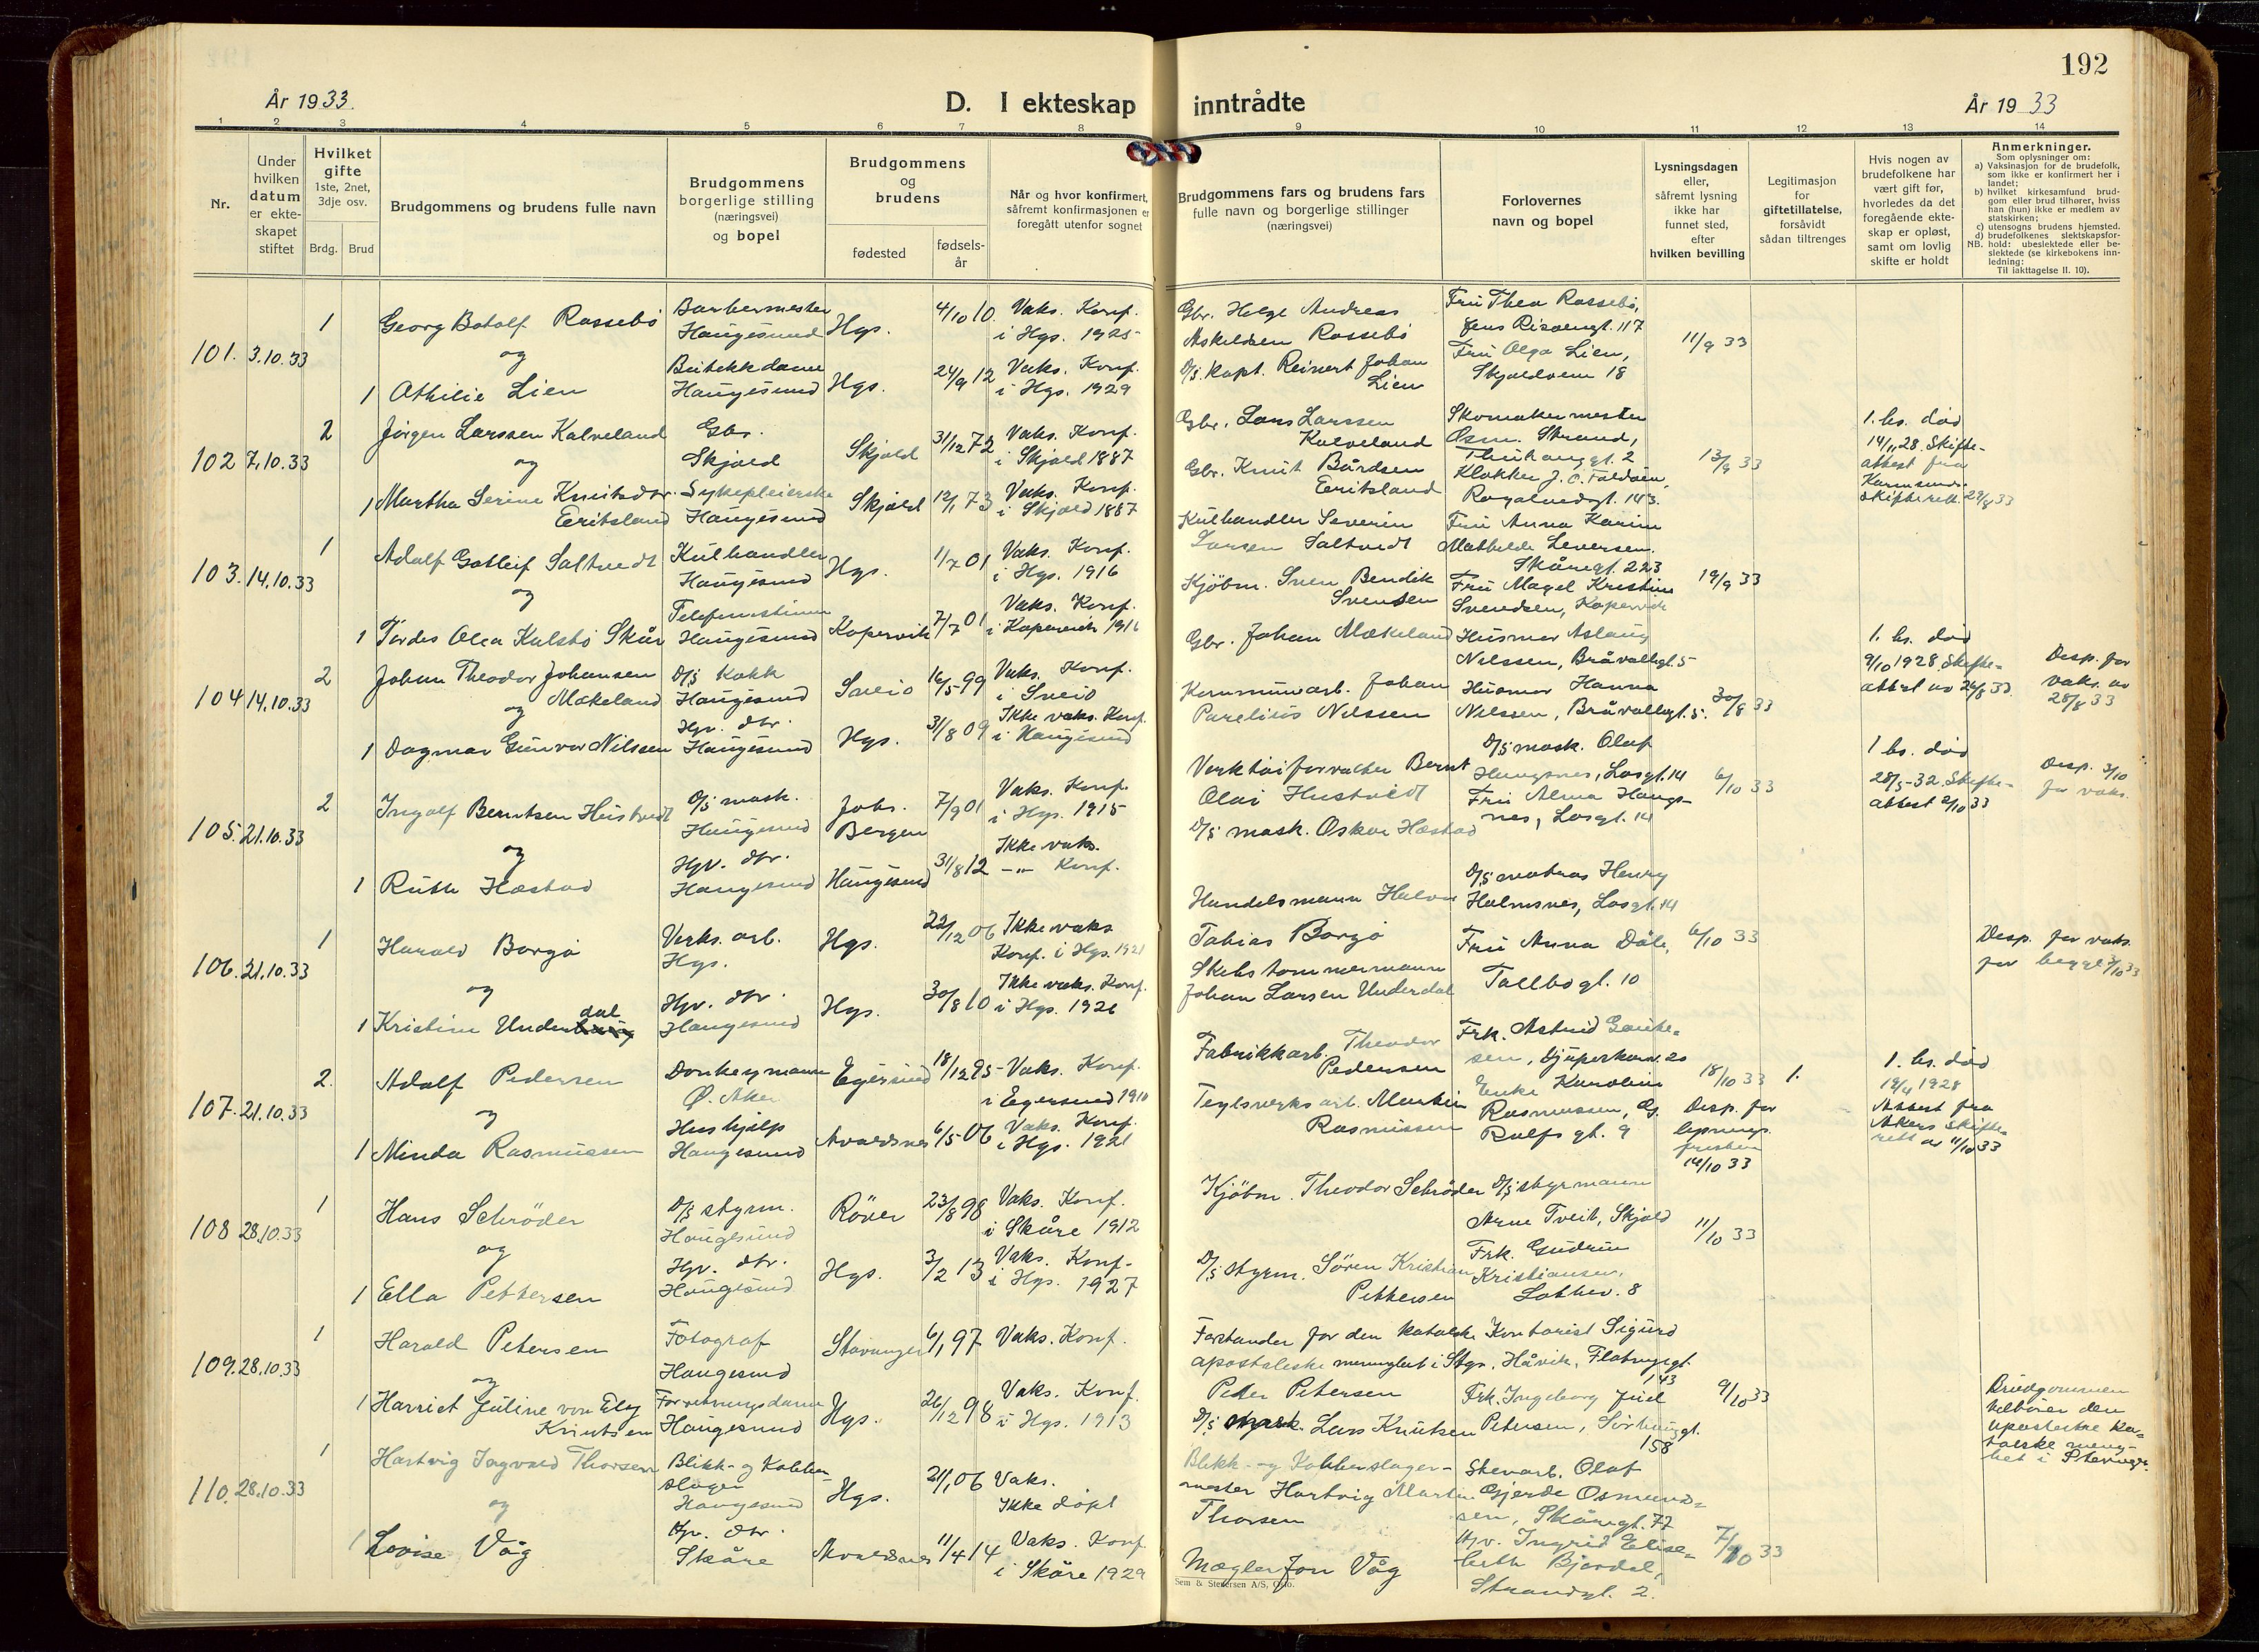 192
År 1933.
D. I ekteskap inntrådte
År 1933
1 2 3 4 5 6 7 8 9 10 11 12 13 14
Nr.
Under hvilken datum er ekteskapet stiftet
Hvilket gifte 1ste, 2net, 3dje osv.
Brdg. Brud
Brudgommens og brudens fulle navn
Brudgommens borgerlige stilling (næringsvei) og bopel
Brudgommens og brudens
fødested
fødselsår
Når og hvor konfirmert, såfremt konfirmasjonen er foregått utenfor sognet
Brudgommens fars og brudens fars fulle navn og borgerlige stillinger (næringsvei)
Forlovernes navn og bopel
Lysningsdagen eller, såfremt lysning ikke har funnet sted, efter hvilken bevilling
Legitimasjon for giftetillatelse, forsåvidt sådan tiltrenges
Hvis nogen av brudefolkene har vært gift før, hvorledes da det foregående ekteskap er opløst, samt om lovlig skifte er holdt
Anmerkninger.
Som oplysninger om:
a) Vaksinasjon for de brudefolk, som ikke er konfirmert her i landet;
b) hvilket kirkesamfund brudgom eller brud tilhører, hviss han (hun) ikke er medlem av statskirken;
c) utensogns brudens hjemsted.
d) brudefolkenes slektskapsforhold: ubeslektede eller beslektede (se kirkebokens innledning:
NB. Til iakttagelse II. 10).
101. 3.10.33
1 Georg Botolf Rossebö Barbermester Haugesund Hgs. 4/10 10. Vaks. Konf. i Hgs. 1925
Gbr. Helge Andreas Askildsen Rossebö
Fru Thea Rossebö, Jens Risøensgt. 117
11/9 33
og
1 Othilie Lien Butikkdame Haugesund Hgs. 24/9 12 Vaks. Konf. i Hgs. 1929
D/S. Kapt. Reinert Johan Lien
Fru Olga Lien, Skjoldvein 18
102 7.10.33
2 Jørgen Larssen Kalveland Gbr. Skjold Skjold 31/12 72 Vaks. Konf. i Skjold 1887
Gbr. Lars Larssen Kalveland
Skomakermester Osm. Strand, Thuhauggt. 2
13/9 33
1. hs. död 14/11 28. Skifteattest fra Karmsund skifterett 29/8 33
og
1 Martha Serine Knutsdtr. Eritsland Sykepleierske Haugesund Skjold 12/1 73 Vaks. Konf. i Skjold 1887
Gbr. Knut Bårdsen Eritsland
Klokker J. O. Foldöen, Rogalandsgt. 143.
103. 14.10.33
1 Adolf Gotleif Saltvedt Kulhandler Haugesund Hgs. 1/7 01 Vaks. Konf. i Hgs. 1916
Kulhandler Severin Larsen Saltvedt
Fru Anna Karin Mathilde Leversen. Skåregt. 223
19/9 33
og
1 Tordes Olea Kalstö Skår Telefonistinne Haugesund Kopervik 7/7 01 Vaks. Konf. i Kopervik 1916
Kjöbm. Sven Bendik Svendsen
Fru Magel Kristine Svendsen, Kopervik
104 14.10.33
2 Johan Theodor Johansen Mækeland D/S Kokk Haugesund Sveio 16/5 99 Vaks. Konf. i Sveio
Gbr. Johan Mækeland
Husmor Aslaug Nilssen, Bråvallagt. 5
30/8 33
1. hs. död 9/10 1928. Skifteattest av 26/8 33.
Disp. for vaks. av 28/8 33
og
1 Dagmar Gunvor Nilssen Hjv. dtr. Haugesund Hgs. 31/8 09 Ikke vaks. Konf. i Haugesund
Kommunearb. Johan Parelius Nilssen
Husmor Hanna Nilssen, Bråvallagt. 5.
105. 21.10.33
2 Ingolf Berntsen Hustvedt D/S mask. Haugesund Johs. Bergen 7/9 01 Vaks. Konf. i Hgs. 1915
Verktöiforvalter Bernt Olai Hustvedt
D/S mask. Olaf Haugsnes, Losgt. 14
6/10 33
1 hs. död 28/5-32. Skifteattest 2/10 33
Disp. 3/10 for vaks.
og
1 Ruth Hæstad Hjv. dtr. Haugesund Haugesund 31/8 12 Ikke vaks. -"- Konf.
D/S mask. Oskar Hæstad
Fru Alma Haugsnes, Losgt. 14
106. 21.10.33
1 Harald Borgö Verks. arb. Hgs. Hgs. 22/12 06 Ikke vaks Konf. i Hgs. 1921
Handelsmann Halvor Tobias Borgö
D/S matros Henry Holmsnes, Losgt. 14
6/10 33
Disp. for vaks. for begge 3/10 33
og
1 Kristine Underdal Hjv. dtr. Haugesund Hgs. 30/8 10 Ikke vaks. Konf. i Hgs. 1926
Skibstømmermann Johan Larsen Underdal
Fru Anna Dåle, Tallbogt. 10
107. 21.10.33
2. Adolf Pedersen Donkeymann Ø. Aker Egersund 18/12 95 Vaks. Konf. i Egersund 1910
Fabrikkarb. Theodor Pedersen
Frk. Astrid Gautesen, Djuperskarv. 20
18/10 33
1.
1. hs. död 19/4 1928 Attest fra Akers Skifterett av 11/10 33
og
1 Minda Rasmussen Hushjelp Haugesund Avaldsnes 6/5 06 Vaks. Konf. i Hgs. 1921
Teglverksarb. Martin Rasmussen
Enke Karoline Rasmussen, G. Rolfsgt. 9
Disp. for lysnings fristen 14/10 33
108 28.10.33
1 Hans Schröder D/S styrm. Haugesund Röver 23/8 98 Vaks. Konf. i Skåre 1912
Kjöbm. Theodor Schröder
D/S styrmann Arne Tveit, Skjold
11/10 33
og
1 Ella Pettersen Hjv. dtr. Haugesund Hgs. 3/2 13 Vaks. Konf. i Hgs. 1927
D/S styrm. Sören Kristian Pettersen
Frk. Gudrun Kristiansen, Lothev. 8
109. 28.10.33
1 Harald Petersen Fotograf Haugesund Stavanger 6/1 97 Vaks. Konf.
Forstander for den katolske apostoliske menighet i Stgr. Peder Petersen
Kontorist Sigurd Håvik, Flotmyrgt. 143
9/10 33
Brudgommen tilhører den apostolske katolske menighet i Stavanger.
og
1 Harriet Juline von Ely Knutsen Forretningsdame Haugesund Hgs. 26/12 98 Vaks. Konf. i Hgs. 1913
D/S mask. Lars Knutsen
Frk. Ingeborg Juel Petersen, Sörhauggt. 158
110. 28.10.33
1 Hartvig Ingvald Thorsen Blikk- og Kobberslager Haugesund Hgs. 21/1 06 Vaks. Ikke döpt
Blikk- og Kobberslagermester Hartvig Martin Thorsen
Stenarb. Olaf Gjerde Osmundsen, Skåregt. 77
7/10 33
og
1 Lovise Våg Hjv. dtr. Skåre Avaldsnes 11/4 14 Vaks. Konf. i Skåre 1929
Mægler Jon Våg
Hjv. Ingrid Elisebeth Bjordal, Strandgt. 2.
Sem & Stenersen A/S, Oslo.